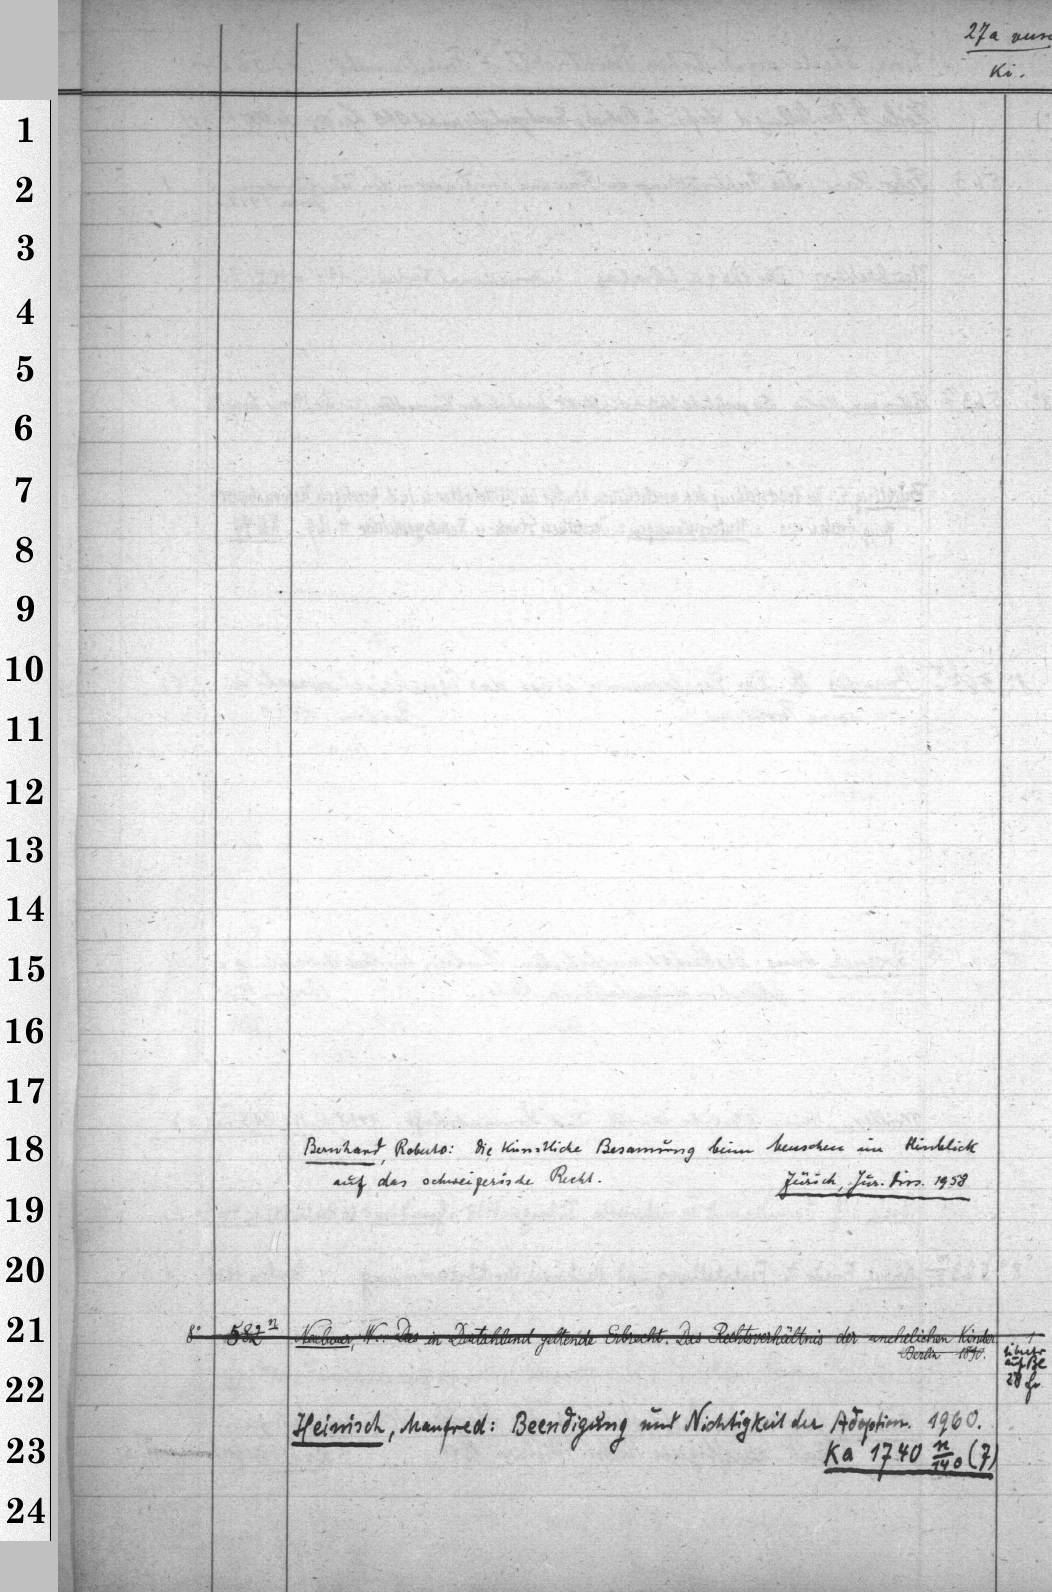 27a
Ki.
1
2
3
4
5
6
7
8
9
10
11
12
13
14
15
16
17
18
Bernhard, Roberto: Die Künstliche Besamung beim Menschen im Hinblick
auf das schweizerische Recht. Zürich, Jur. Diss. 1958
19
20
21
8° 582 n Neubauer, W.: Das in Deutschland geltende Erbrecht. Das Rechtsverhältnis der unehelichen Kinder
Berlin 1890. 1
auf Bl
28
22
Heinisch, Manfred: Beendigung und Nichtigkeit der Adoption. 1960.
23
Ka 1740 n/140 (7)
24